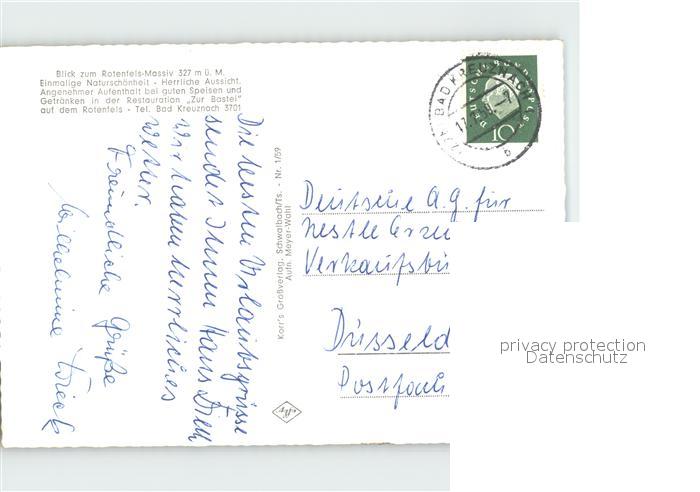 Blick zum Rotenfels-Massiv 327 m ü. M.
Einmalige Naturschönheit - Herrliche Aussicht.
Angenehmer Aufenthalt bei guten Speisen und
Getränken in der Restauration „Zur Bastei"
auf dem Rotenfels - Tel. Bad Kreuznach 3701
Die besten Urlaubsgrüsse
sendet Ihnen Haus
wir haben herrliches
Wetter.
Freundliche Grüße
Wilhelmine
Korr's Großverlag, Schwalbach/Ts. - Nr. 1/59
Aufn. Meyer-Wahl
BAD KREUZNACH
DEUTSCHE BUNDESPOST
10
Deutsche A.G. für
Nestle Erzeu
Verkaufsbü
Düsseld
Postfach
privacy protection
Datenschutz